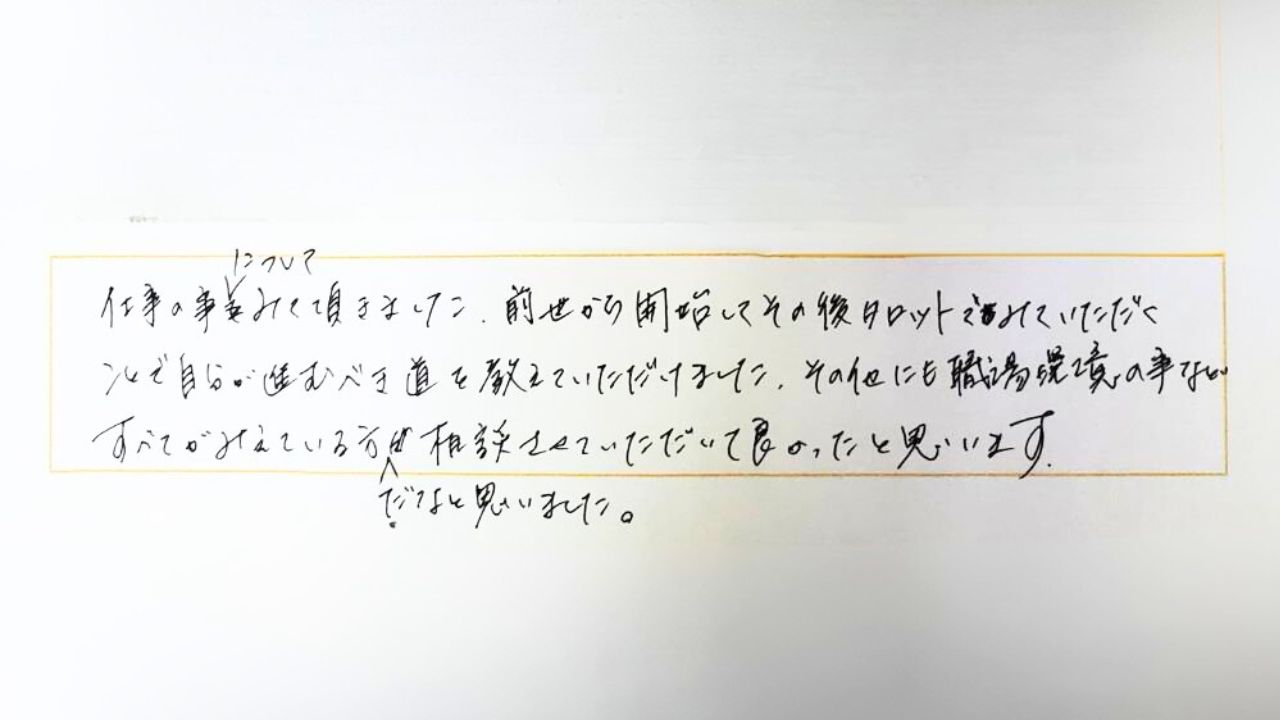 について
仕事の事みて頂きました。前世から開始してその後タロットでみていただく
ことで自分が進むべき道を教えていただけました。その他にも職場環境の事など
すべてがみえている方 相談させていただいて良かったと思います。
だなと思いました。